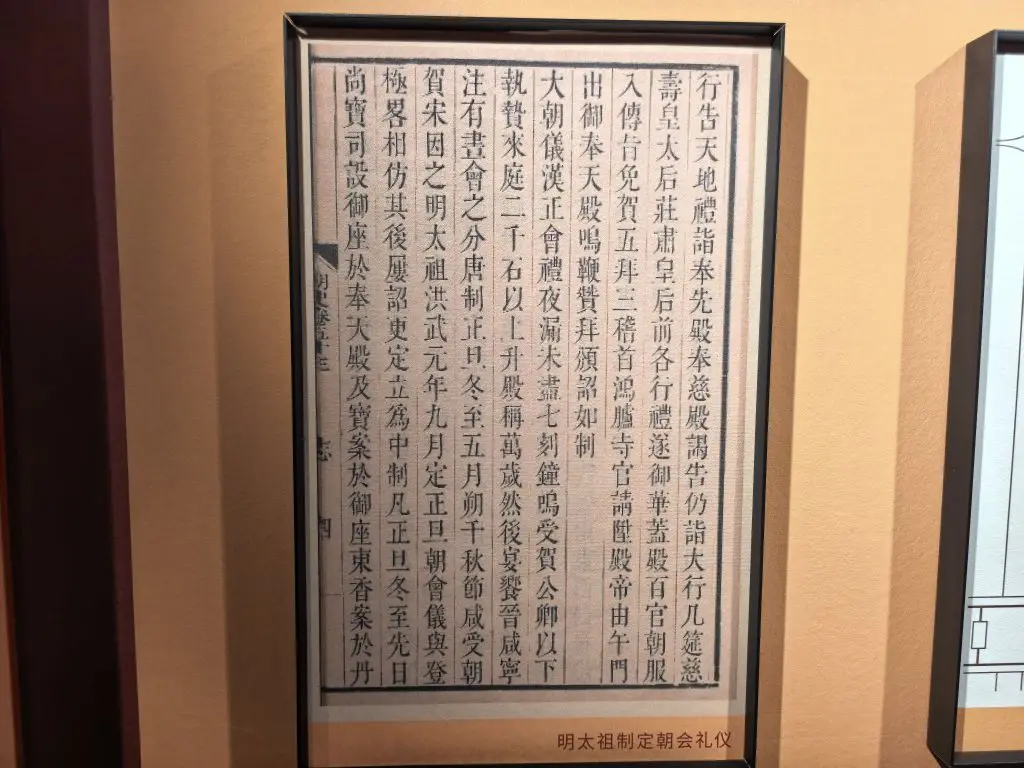 行告天地禮詣奉先殿奉慈殿謁告仍詣大行几筵慈
壽皇太后莊肅皇后前各行禮遂御華蓋殿百官朝服
入傳旨免賀五拜三稽首鴻臚寺官請陞殿帝由午門
出御奉天殿鳴鞭贊拜頒詔如制
大朝儀漢正會禮夜漏未盡七刻鐘鳴受賀公卿以下
執贄來庭二千石以上升殿稱萬歲然後宴饗晉咸寧
注有晝會之分唐制正旦冬至五月朔千秋節咸受朝
賀宋因之明太祖洪武元年九月定正旦朝會儀與登
極畧相仿其後屢詔更定立為中制凡正旦冬至先日
尚寶司設御座於奉天殿及寶案於御座東香案於丹
明史卷五十三
志
四
明太祖制定朝会礼仪